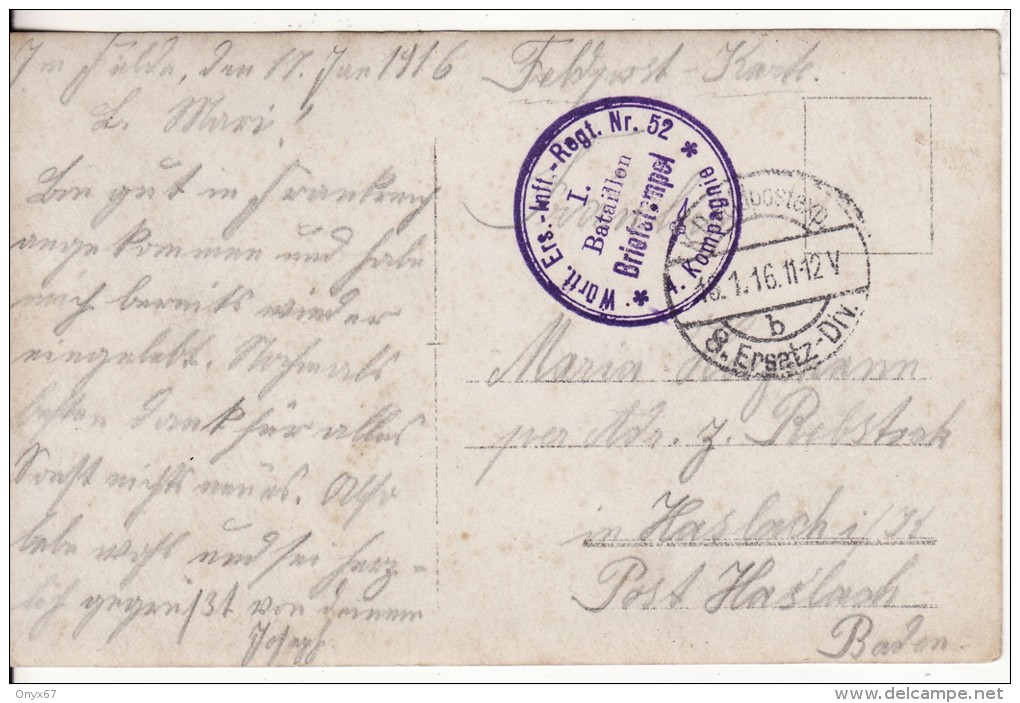 Im Felde, den 17. Jan 1916
L. Mari!
Bin gut in Frankreich
angekommen und habe
mich bereits wieder
eingelebt. Nochmals
besten Dank für alles
Sonst nichts neues. Also
lebe wohl und sei herz-
lich gegrüßt von deinem
Joseph
Feldpost-Karte.
Württ. Ers.-Inft.-Regt. Nr. 52
I.
Bataillon
Briefstempel
1. Kompagnie
K.D. Feldpostexp.
18.1.16.11-12V
b
8. Ersatz-Div.
Maria
per Adr. z. Rebstock
in Haslach i/K
Post Haslach
Baden
Onyx67
http://www.delcampe.net